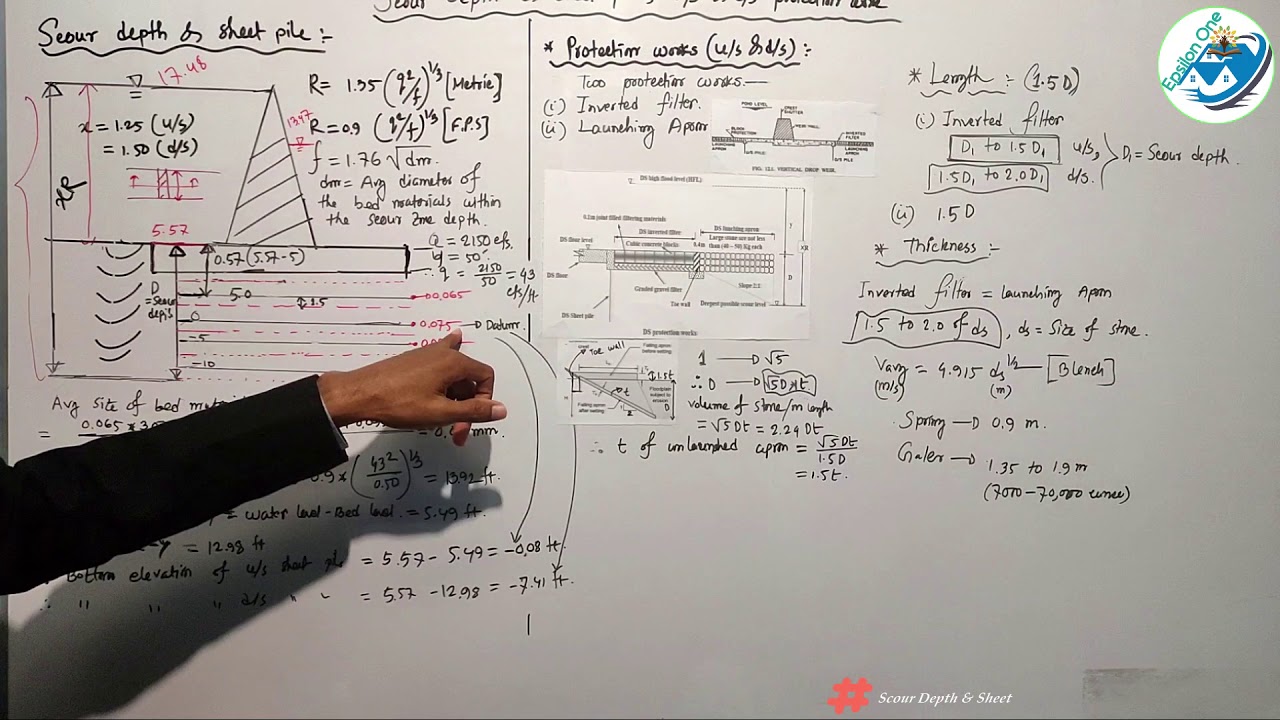 Scour depth & sheet pile :-
17.48
x = 1.25 (u/s)
= 1.50 (d/s)
xR
13.47
5.57
R = 1.35 (q²/f)^1/3 [Metric]
R = 0.9 (q²/f)^1/3 [F.P.S]
f = 1.76 √dm.
dm = Avg diameter of
the bed materials within
the scour zone depth.
Q = 2150 cfs.
∴ q = 2150/50 = 43
cfs/ft
0.57 (5.57-5)
D
= Scour
5.0
1.5
0.065
0
0.075 → Datum.
-5
-10
Avg size of bed
mm.
(43²/0.50)^1/3 = 13.92 ft.
= Water level - Bed level. = 5.49 ft.
= 12.98 ft
Bottom elevation of u/s sheet pile = 5.57 - 5.49 = -0.08 ft.
∴ " " " d/s " " = 5.57 - 12.98 = -7.41 ft.
* Protection works (u/s & d/s) :-
Two protection works.—
(i) Inverted filter.
(ii) Launching Apron
POND LEVEL
CREST SHUTTER
WEIR WALL
BLOCK PROTECTION
INVERTED FILTER
LAUNCHING APRON
U/S PILE
D/S PILE
LAUNCHING APRON
FIG. 12.1. VERTICAL DROP WEIR.
DS high flood level (HFL)
0.1m joint filled filtering materials
DS inverted filter
DS lunching apron
Cubic concrete blocks
0.4m
Large stone are not less than (40 – 50) Kg each
DS floor level
DS floor
Graded gravel filter
Toe wall
Slope 2:1
Deepest possible scour level
DS Sheet pile
Y
XR
D
DS protection works
Toe wall
Falling apron before setting
1.5t
Falling apron after setting
Floodplain subject to erosion
1 → √5
∴ D → √5D*t
volume of stone/m length
= √5 Dt = 2.24 Dt
∴ t of unlaunched apron = √5Dt/1.5D
= 1.5t.
* Length :- (1.5D)
(i) Inverted filter
D₁ to 1.5D₁ u/s,
1.5D₁ to 2.0D₁ d/s.
D₁ = Scour depth.
(ii) 1.5D
* Thickness :-
Inverted filter = Launching Apron
1.5 to 2.0 of ds, ds = Size of stone.
Vavg = 4.915 ds^1/2 — [Blench]
(m/s) (m)
Spring → 0.9 m.
Galer → 1.35 to 1.9 m
(7000 - 70,000 cumec)
Epsilon One
# Scour Depth & Sheet